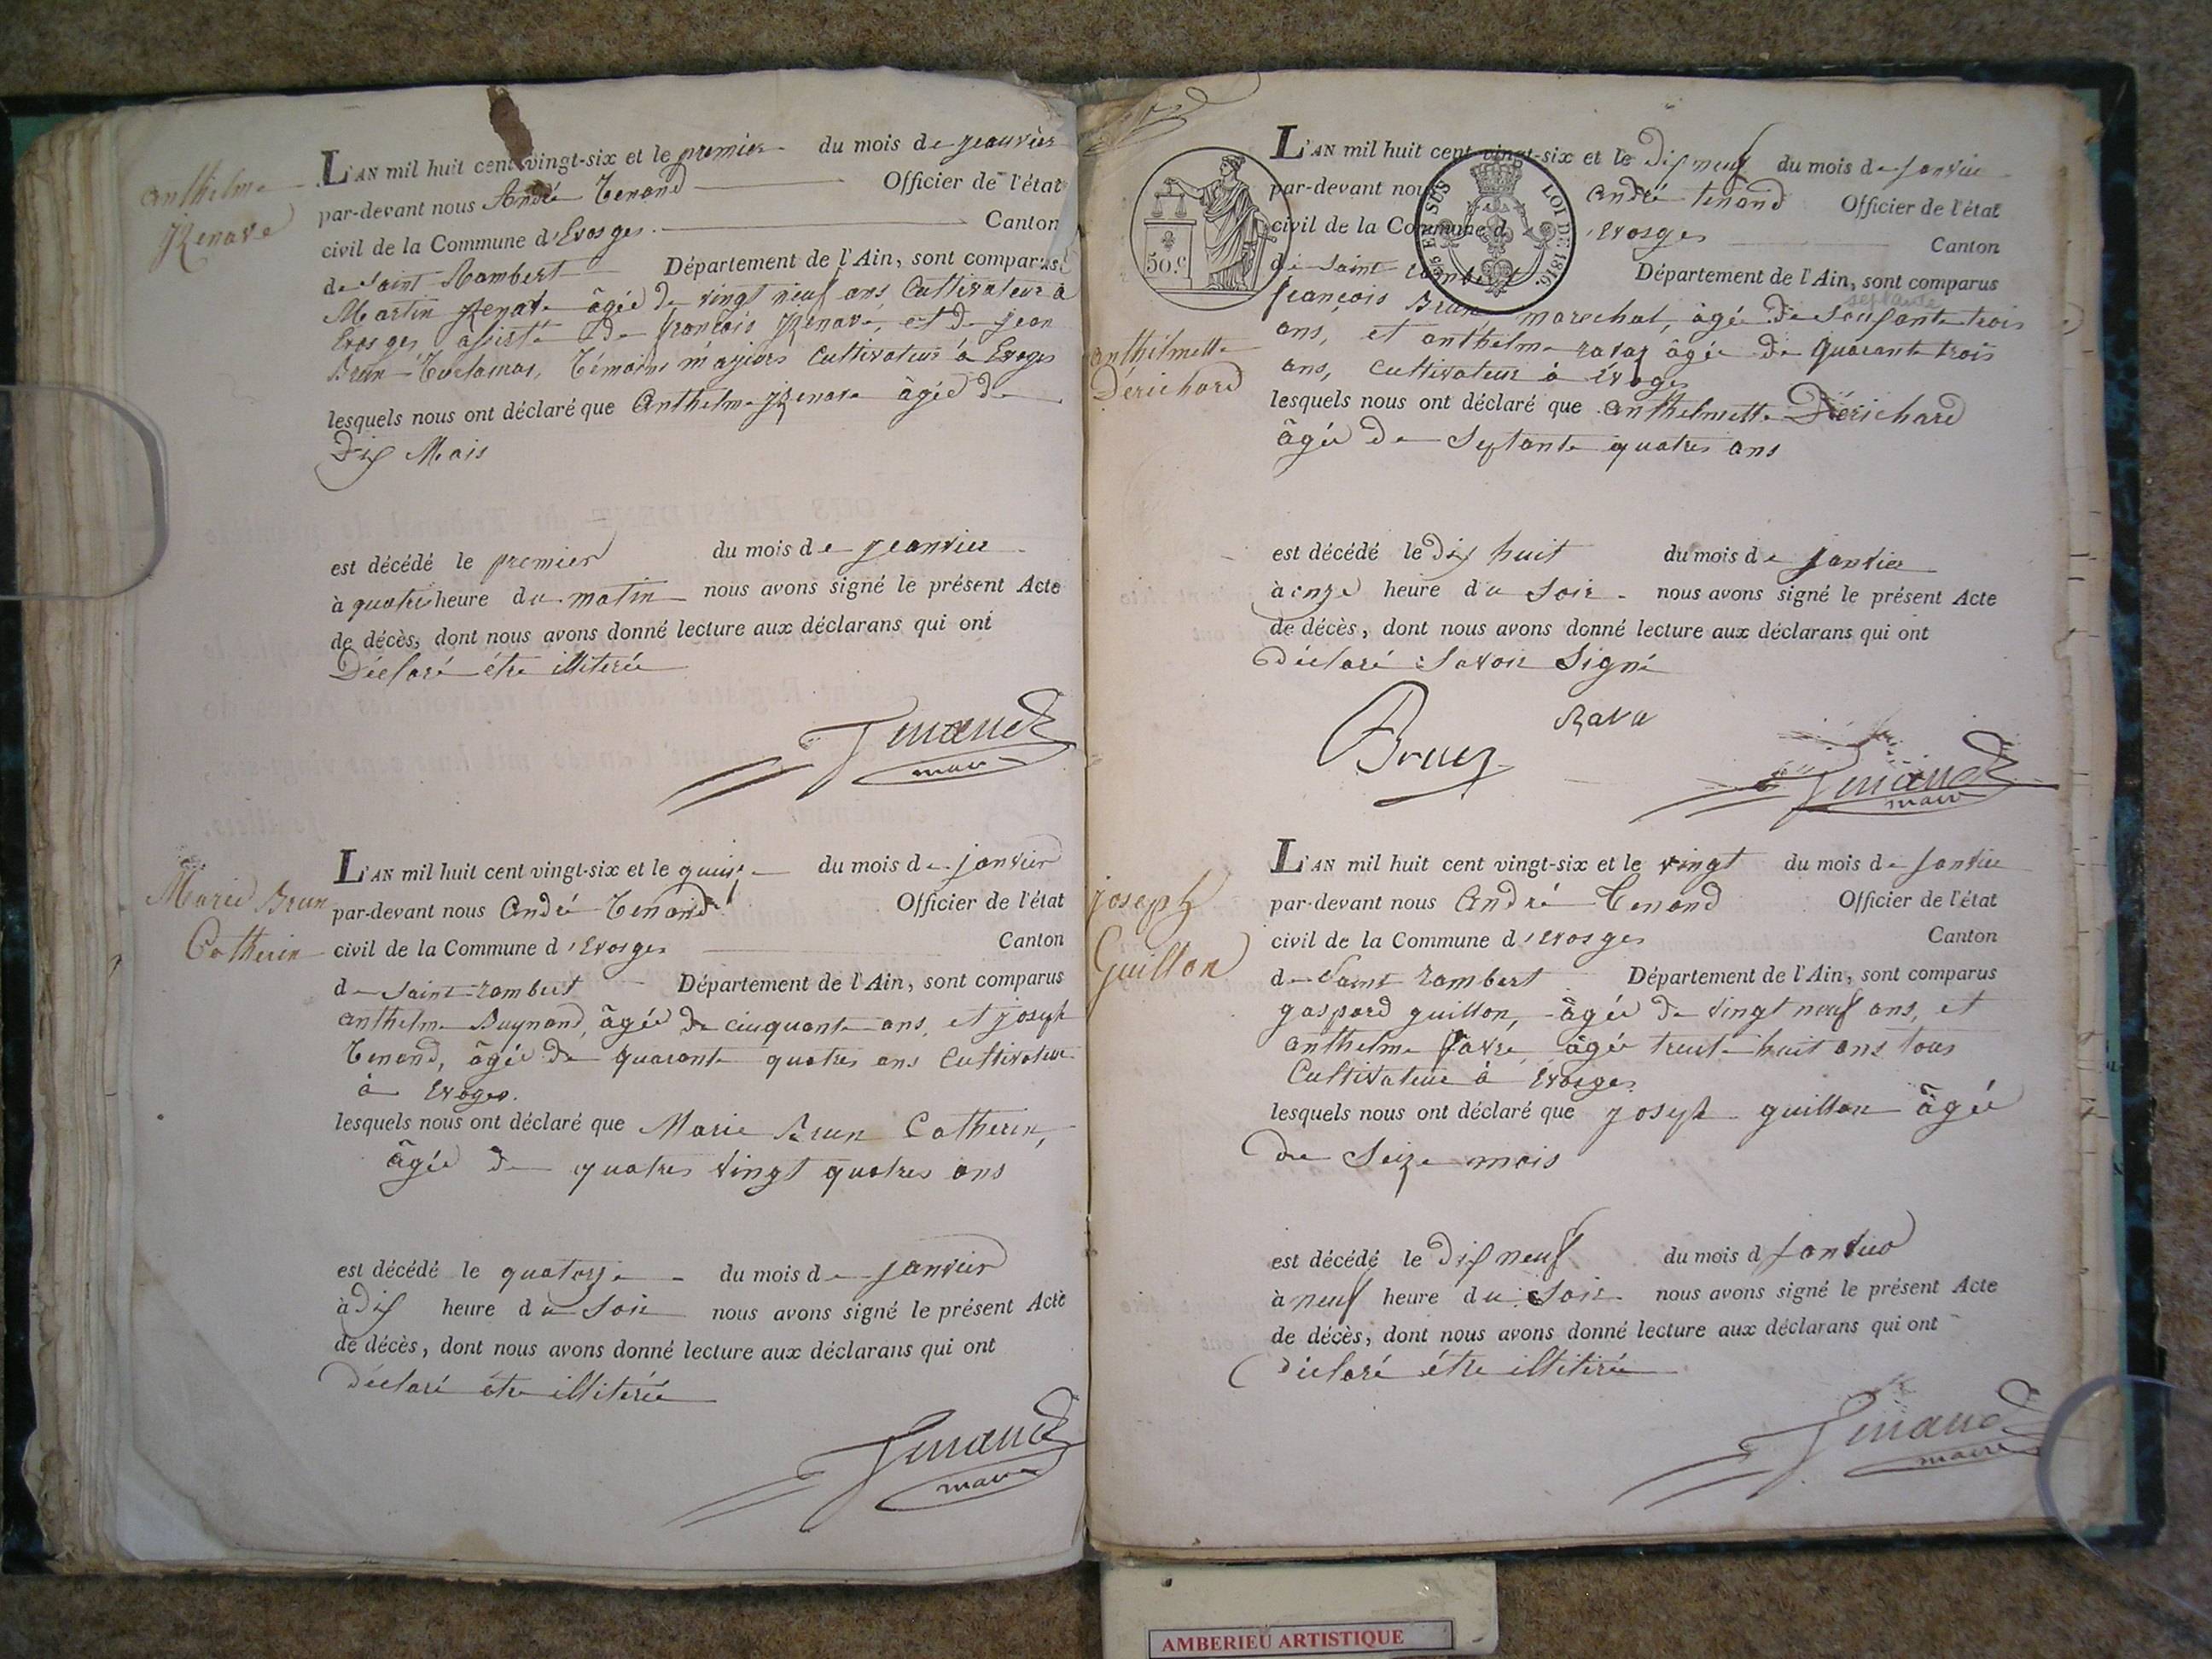 anthelme
Renave
L'AN mil huit cent vingt-six et le premier du mois de jeanvier
par-devant nous André Tenand Officier de l'état
civil de la Commune d'Evosges Canton
de Saint Rambert Département de l'Ain, sont comparus
Martin Renave âgée de vingt neuf ans Cultivateur à
Evosges assisté de françois Renave, et de jean
Brun Témoins majeurs Cultivateur à Evoges
lesquels nous ont déclaré que Anthelme Renave âgée de
Dix Mois
est décédé le premier du mois de jeanvier
à quatre heure du matin nous avons signé le présent Acte
de décès, dont nous avons donné lecture aux déclarans qui ont
Déclaré étre illiterée
Tenand
maire
Marie Brun
Catherin
L'AN mil huit cent vingt-six et le quinze du mois de janvier
par-devant nous André Tenand Officier de l'état
civil de la Commune d'Evosges Canton
de Saint rambert Département de l'Ain, sont comparus
anthelme Buynand, âgée de cinquante ans, et joseph
Tenand, âgée de quarante quatres ans Cultivateur
à Evoges.
lesquels nous ont déclaré que Marie Brun Catherin,
âgée de quatres vingt quatres ans
est décédé le quatorze du mois de janvier
à dix heure du soir nous avons signé le présent Acte
de décès, dont nous avons donné lecture aux déclarans qui ont
déclaré étre illiterée
Tenand
maire
50.c
EN SUS
LOI DE 1816.
anthelmette
Derichard
L'AN mil huit cent vingt-six et le Dix neuf du mois de janvier
par-devant nous André tenand Officier de l'état
civil de la Commune d'evosges Canton
de Saint rambert Département de l'Ain, sont comparus
septante
françois Brun marechal, âgée de soixante trois
ans, et anthelme ravaz âgée de quarante trois
ans, Cultivateur à Evoges
lesquels nous ont déclaré que anthelmette Dérichard
âgée de Septante quatres ans
est décédé le Dix huit du mois de janvier
à onze heure du Soir nous avons signé le présent Acte
de décès, dont nous avons donné lecture aux déclarans qui ont
Déclaré Savoir Signé
Brun
Rava
Tenand
maire
joseph
Guillon
L'AN mil huit cent vingt-six et le vingt du mois de janvier
par-devant nous André Tenand Officier de l'état
civil de la Commune d'evosges Canton
de Saint rambert Département de l'Ain, sont comparus
gaspard guillon, âgée de vingt neuf ans, et
anthelme favre âgée trente huit ans tous
Cultivateur à Evosges
lesquels nous ont déclaré que joseph guillon âgée
de Seize mois
est décédé le Dix neuf du mois d janvier
à neuf heure du Soir nous avons signé le présent Acte
de décès, dont nous avons donné lecture aux déclarans qui ont
déclaré étre illiterée
Tenand
maire
AMBERIEU ARTISTIQUE